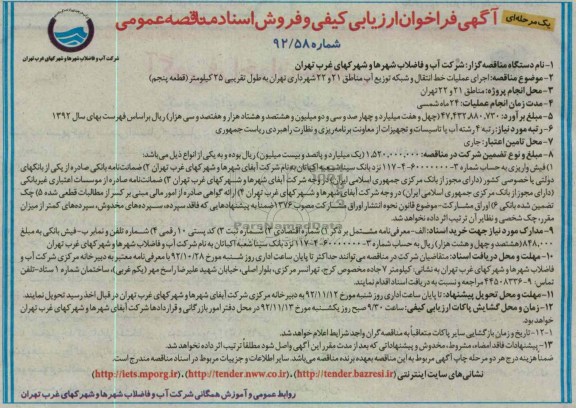 یک مرحله‌ای
آگهی فراخوان ارزیابی کیفی و فروش اسناد مناقصه عمومی
شماره ۹۲/۵۸
شرکت آب و فاضلاب شهرها و شهرکهای غرب تهران
۱- نام دستگاه مناقصه گزار: شرکت آب و فاضلاب شهرها و شهرکهای غرب تهران
۲- موضوع مناقصه: اجرای عملیات خط انتقال و شبکه توزیع آب مناطق ۲۱ و ۲۲ شهرداری تهران به طول تقریبی ۲۵ کیلومتر (قطعه پنجم)
۳- محل انجام پروژه: مناطق ۲۱ و ۲۲ تهران
۴- مدت زمان انجام عملیات: ۲۴ ماه شمسی
۵- مبلغ برآورد: ۴۷,۴۳۲,۸۸۰,۷۳۰ (چهل و هفت میلیارد و چهارصد و سی و دو میلیون و هشتصد و هشتاد هزار و هفتصد و سی هزار) ریال براساس فهرست بهای سال ۱۳۹۲
۶- رتبه مورد نیاز: رتبه ۴ رشته آب یا تاسیسات و تجهیزات از معاونت برنامه‌ریزی و نظارت راهبردی ریاست جمهوری
۷- محل تامین اعتبار: جاری
۸- مبلغ و نوع تضمین شرکت در مناقصه: ۱,۵۲۰,۰۰۰,۰۰۰ (یک میلیارد و پانصد و بیست میلیون) ریال بوده و به یکی از انواع ذیل می‌باشد:
۱) فیش واریزی به حساب شماره ۳-۶۰۰۰۰۰۰-۴-۱۱۷ نزد بانک سینا شعبه اکباتان به نام شرکت آبفای شهرها و شهرکهای غرب تهران ۲) ضمانت‌نامه بانکی صادره از یکی از بانکهای
دولتی یا خصوصی کشور (دارای مجوز از بانک مرکزی جمهوری اسلامی ایران) در وجه شرکت آبفای شهرها و شهرکهای غرب تهران ۳) ضمانت‌نامه صادره از موسسات اعتباری غیربانکی
(دارای مجوز از بانک مرکزی جمهوری اسلامی ایران) در وجه شرکت آبفای شهرها و شهرکهای غرب تهران ۴) ارائه گواهی صادره از امور مالی مبنی بر کسر از مطالبات قطعی شده ۵) چک
تضمین شده بانکی ۶) اوراق مشارکت- موضوع قانون نحوه انتشار اوراق مشارکت مصوب ۱۳۷۶ ضمنا به پیشنهادهایی که فاقد سپرده، سپرده‌های مخدوش، سپرده‌های کمتر از میزان
مقرر، چک شخصی و نظایر آن ترتیب اثر داده نخواهد شد.
۹- مدارک مورد نیاز جهت خرید اسناد: الف- معرفی‌نامه مشتمل بر ذکر ۱) شماره اقتصادی ۲) شماره ثبت ۳) کد پستی ۱۰ رقمی ۴) شماره تلفن و نمابر ب- فیش بانکی به مبلغ
۸۴۸,۰۰۰ (هشتصد و چهل و هشت هزار) ریال به حساب شماره ۳-۶۰۰۰۰۰۰-۴-۱۱۷ نزد بانک سینا شعبه اکباتان به نام شرکت آب و فاضلاب شهرها و شهرکهای غرب تهران
۱۰- مهلت و محل دریافت اسناد: متقاضیان شرکت در مناقصه می توانند حداکثر تا پایان ساعت اداری روز شنبه مورخ ۹۲/۱۰/۲۸ با معرفی نامه معتبر به دبیرخانه مرکزی شرکت آب و
فاضلاب شهرها و شهرکهای غرب تهران به نشانی: کیلومتر ۷ جاده مخصوص کرج، تهرانسر مرکزی، بلوار اصلی، خیابان شهید علیرضا راسخ مهر (یکم غربی)، ساختمان شماره ۱ ستاد- تلفن
تماس: ۹-۴۴۵۰۸۳۳۶ مراجعه و نسبت به دریافت اسناد اقدام نمایند.
۱۱- مهلت و محل تحویل پیشنهاد: تا پایان ساعت اداری روز شنبه مورخ ۹۲/۱۱/۱۲ به دبیرخانه مرکزی شرکت آبفای شهرها و شهرکهای غرب تهران در قبال اخذ رسید تحویل نمایند.
۱۲- زمان و محل گشایش پاکات ارزیابی کیفی: ساعت ۹/۳۰ صبح روز یکشنبه مورخ ۹۲/۱۱/۱۳ در محل دفتر امور بازرگانی و قراردادها شرکت آبفای شهرها و شهرکهای غرب تهران
خواهد بود.
۱-۱۲- تاریخ و زمان بازگشایی سایر پاکات متعاقبا به مناقصه گران واجد شرایط اعلام خواهد شد.
۱۳- پیشنهادات فاقد امضاء، مشروط، مخدوش و پیشنهاداتی که بعد از مدت مقرر این آگهی واصل شود مطلقا ترتیب اثر داده نخواهد شد.
ضمنا هزینه درج هر دو مرحله چاپ آگهی مربوط به این مناقصه بعهده برنده مناقصه می‌باشد. سایر اطلاعات و جزییات مربوط در اسناد مناقصه مندرج است.
نشانی‌های سایت اینترنتی (http://tender.bazresi.ir)، (http://tender.nww.co.ir)، (http://iets.mporg.ir)
روابط عمومی و آموزش همگانی شرکت آب و فاضلاب شهرها و شهرکهای غرب تهران